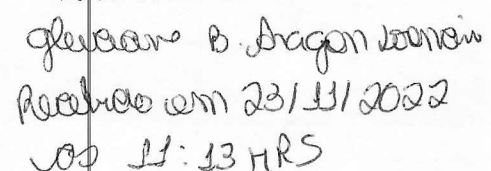 B. Aragon
Recebido em 23/11/2022
às 11:13 HRS